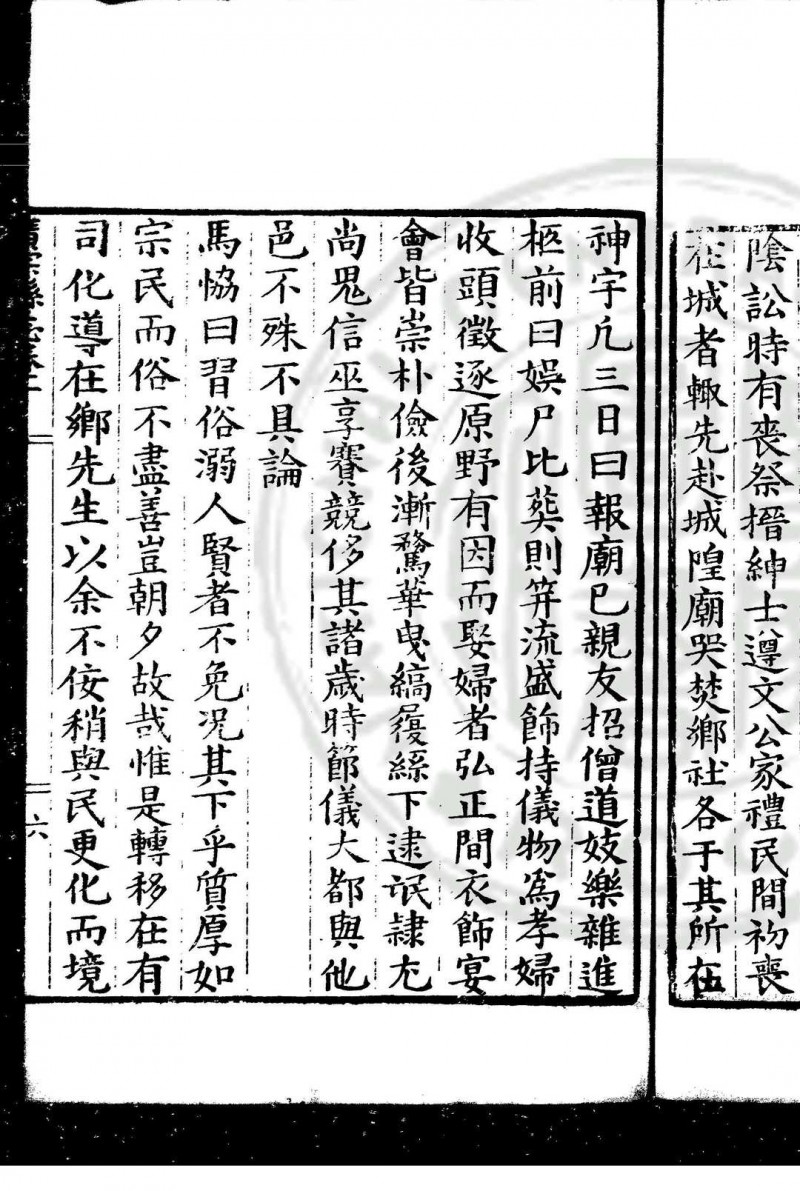 陰訟時有喪祭搢紳士遵文公家禮民間初喪
在城者輙先赴城隍廟哭焚鄉社各于其所在
神宇凢三日曰報廟已親友招僧道妓樂雜進
柩前曰娱尸比葬則筓流盛飾持儀物爲孝婦
收頭徵逐原野有因而娶婦者弘正間衣飾宴
會皆崇朴儉後漸騖華曳縞履絲下逮氓隷尤
尚鬼信巫享賽競侈其諸歲時節儀大都與他
邑不殊不具論
馬恊曰習俗溺人賢者不免况其下乎質厚如
宗民而俗不盡善豈朝夕故哉惟是轉移在有
司化導在鄉先生以余不佞稍與民更化而境
廣宗縣志卷一
六